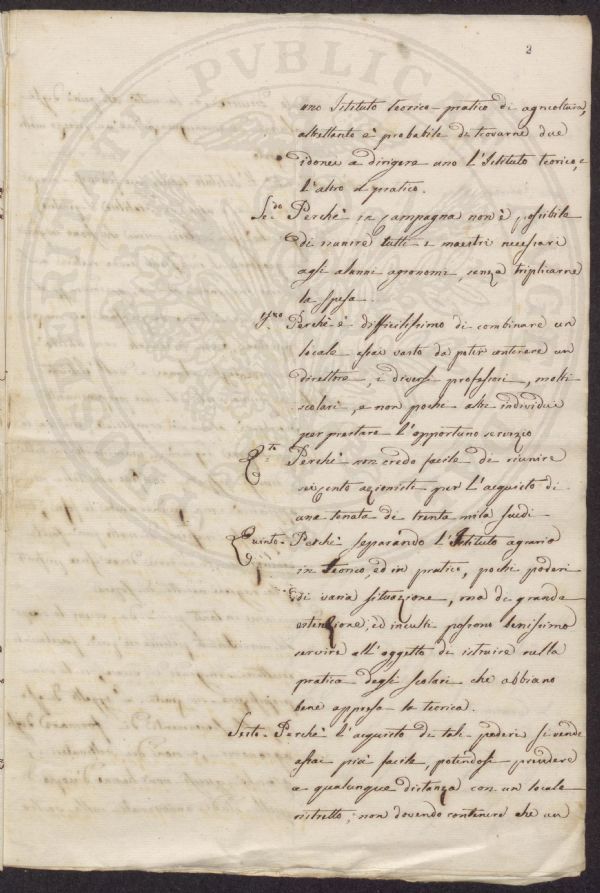 2
uno Istituto teorico-pratico di agricoltura,
altrettanto è probabile di trovarne due
idonei a dirigere uno l'Istituto teorico, e
l'altro il pratico.
Se:do Perchè in campagna non è possibile
di riunire tutti i maestri necessari
agli alunni agronomi, senza triplicarne
la spesa.
Perchè è difficilissimo di combinare un
locale assai vasto da poter contenere un
direttore, i diversi professori, molti
scolari, e non pochi altri individui
per prestare l'opportuno servizio
Perchè non credo facile di riunire
seicento azionisti per l'acquisto di
una tenuta di trenta mila scudi.
Quinto. Perchè separando l'Istituto agrario
in teorico, ed in pratico, pochi poderi
di varia situazione, ma di grande
estenzione, ed inculti possono benissimo
servire all'oggetto di istruire nella
pratica degli scolari che abbiano
bene appresa la teorica.
Sesto. Perchè l'acquisto di tali poderi si rende
assai più facile, potendosi prendere
a qualunque distanza con un locale
ristretto, non dovendo contenere che un